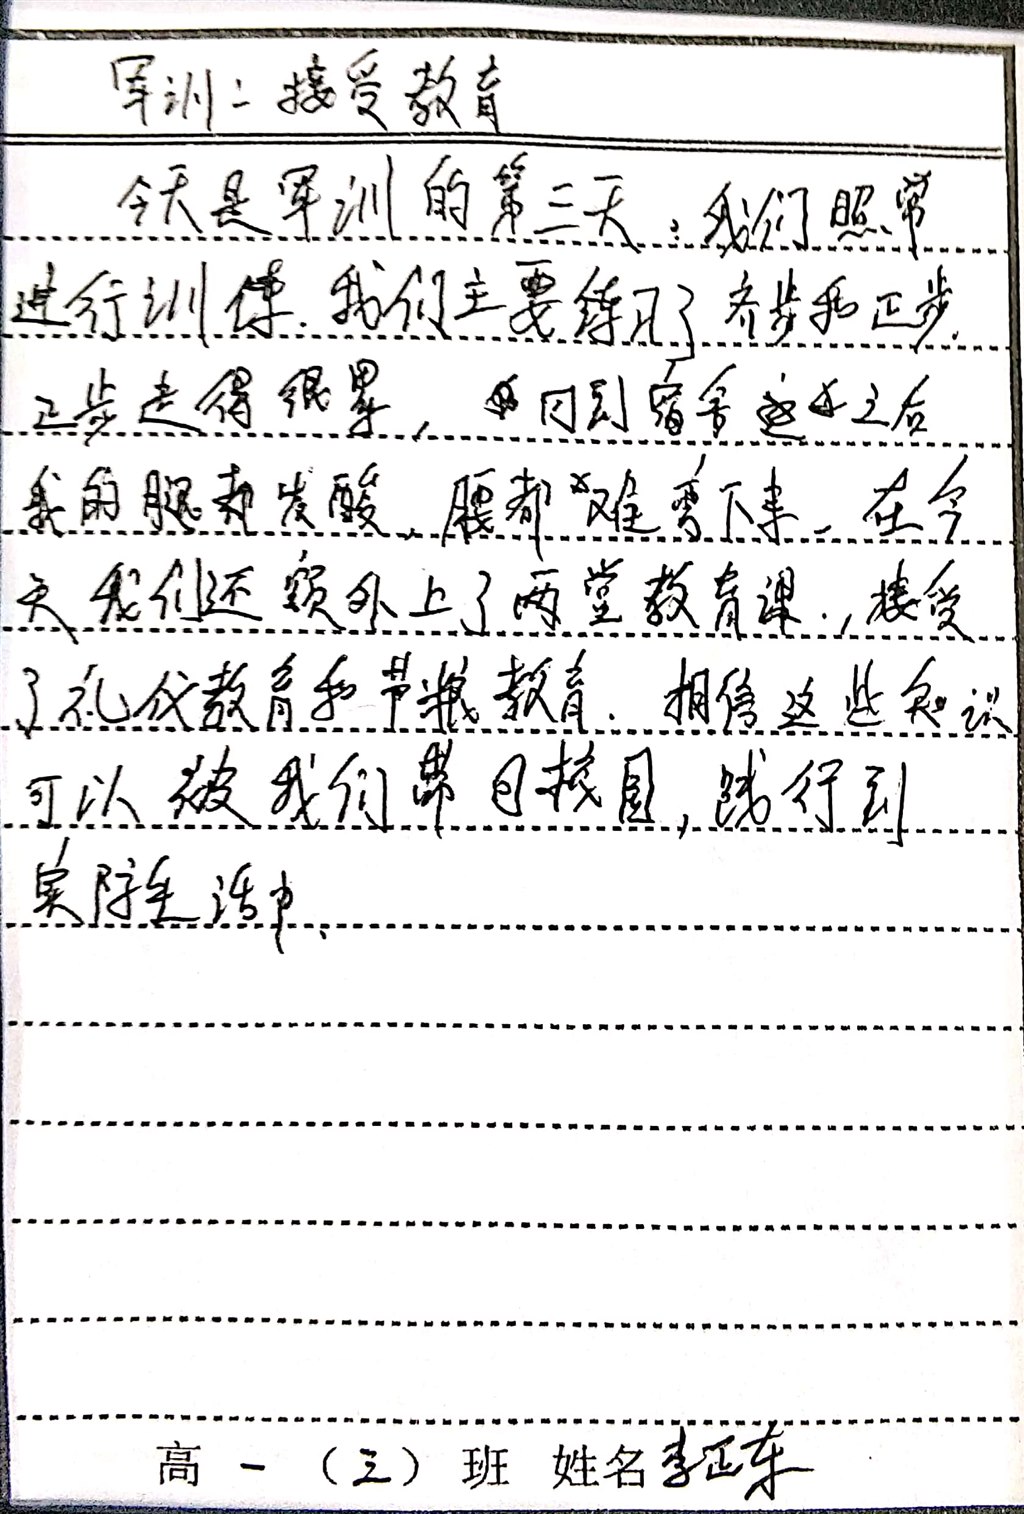 军训二接受教育
今天是军训的第三天，我们照常
进行训练.我们主要练习了齐步和正步.
正步走得很累，回到宿舍之后
我的腿都发酸，腰都难弯下来.在今
天我们还额外上了两堂教育课.,接受
了礼仪教育和节粮教育.相信这些知识
可以被我们带回校园,践行到
实际生活中.
高一（三）班 姓名李正东